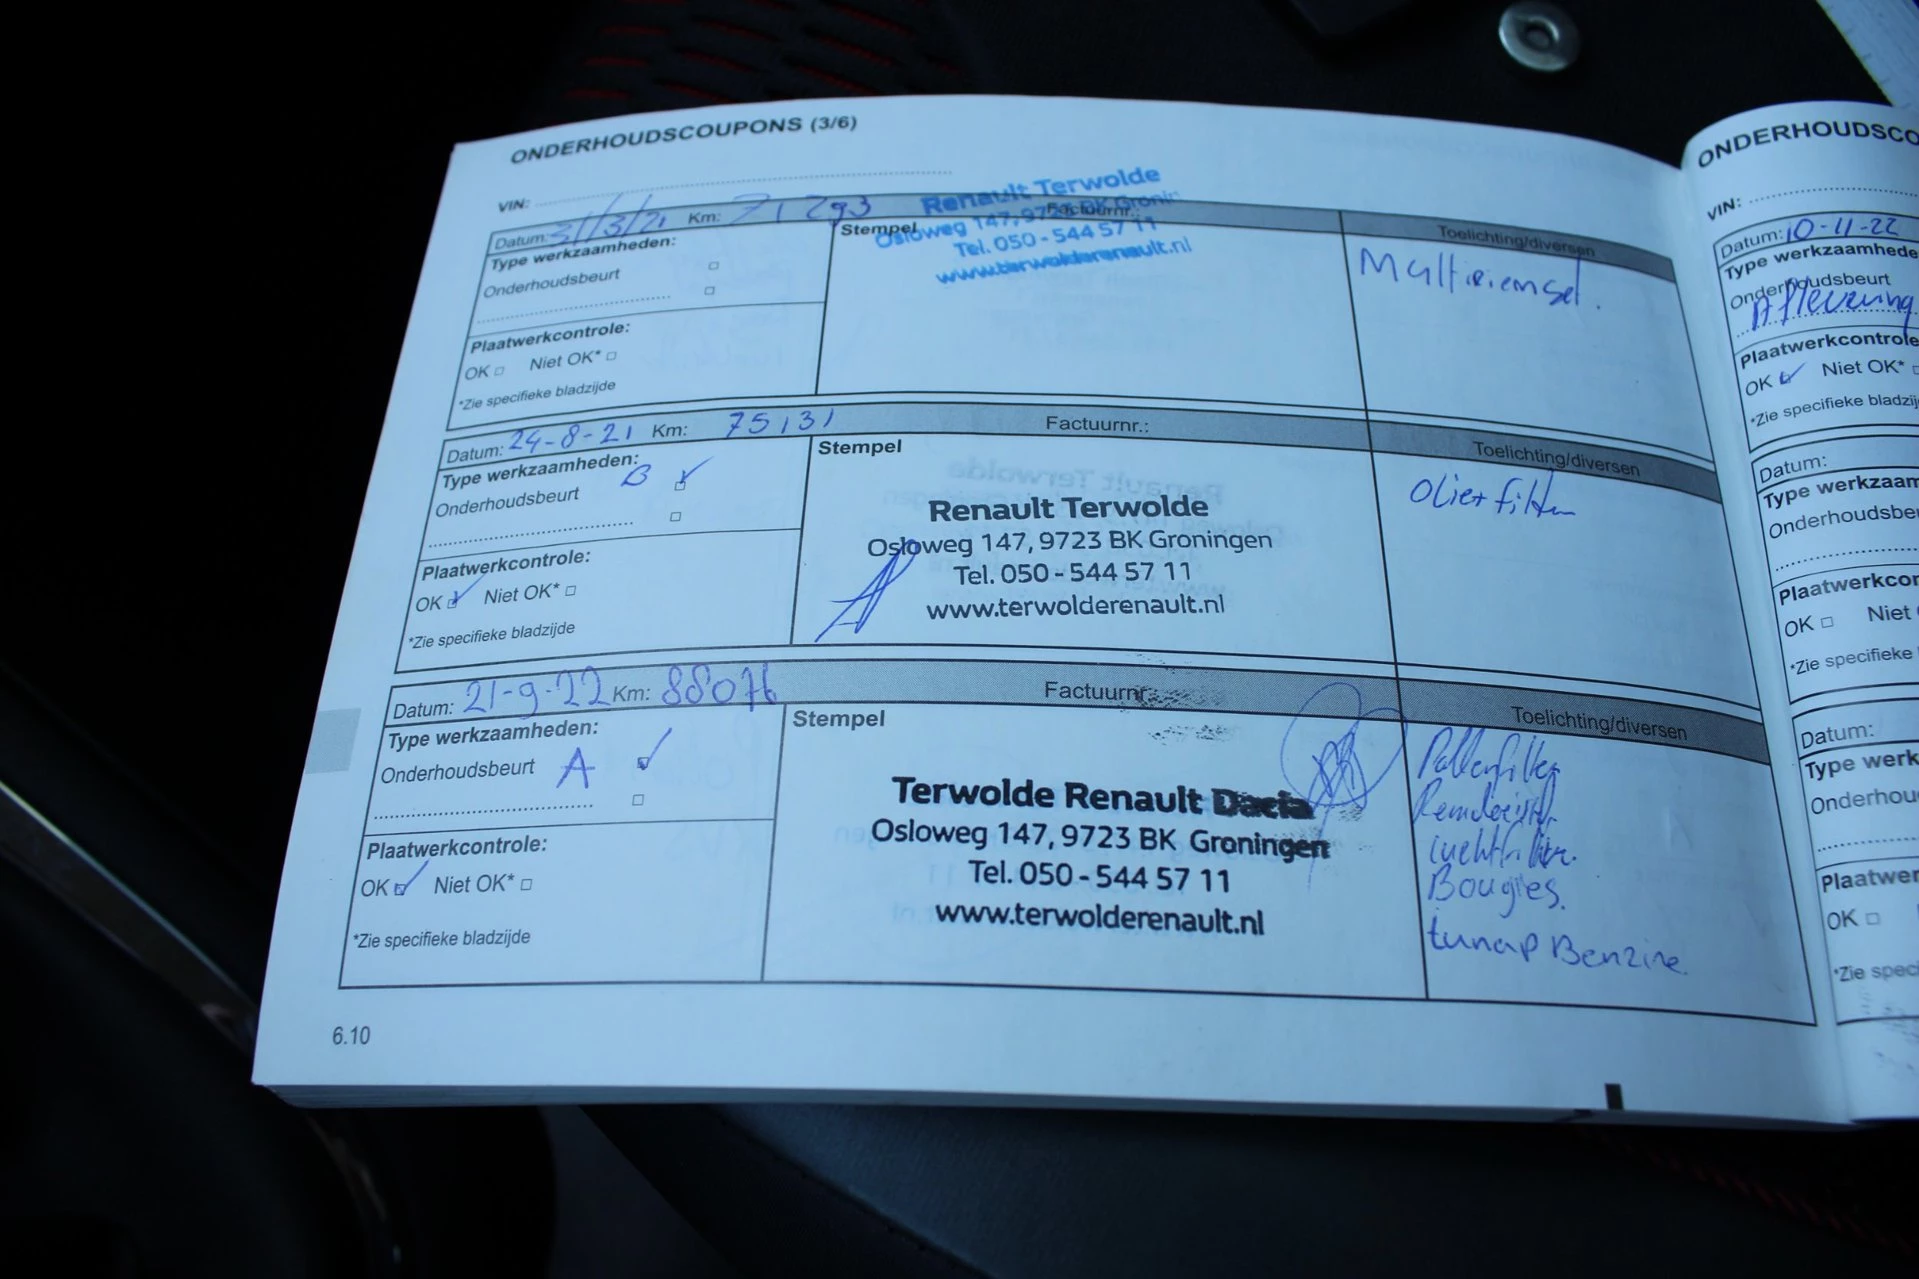 ONDERHOUDSCOUPONS (3/6)
VIN:
Datum: 31/3/21 Km: 71293 Factuurnr.:
Type werkzaamheden:
Onderhoudsbeurt
Plaatwerkcontrole:
OK Niet OK*
*Zie specifieke bladzijde
Stempel
Renault Terwolde
Osloweg 147, 9723 BK Gronin
Tel. 050 - 544 57 11
www.terwolderenault.nl
Toelichting/diversen
Multiriemsel.
Datum: 24-8-21 Km: 75131 Factuurnr.:
Type werkzaamheden:
Onderhoudsbeurt B
Plaatwerkcontrole:
OK Niet OK*
*Zie specifieke bladzijde
Stempel
Renault Terwolde
Osloweg 147, 9723 BK Groningen
Tel. 050 - 544 57 11
www.terwolderenault.nl
Toelichting/diversen
Datum: 21-9-22 Km: 88076 Factuurnr.
Type werkzaamheden:
Onderhoudsbeurt A
Plaatwerkcontrole:
OK Niet OK*
*Zie specifieke bladzijde
Stempel
Terwolde Renault Dacia
Osloweg 147, 9723 BK Groningen
Tel. 050 - 544 57 11
www.terwolderenault.nl
Toelichting/diversen
Pollenfilter
luchtfilter.
Bougies.
tunap Benzine.
6.10
ONDERHOUDSCO
VIN:
Datum: 10-11-22
Type werkzaamhede
Onderhoudsbeurt
Aflevering
Plaatwerkcontrole
OK Niet OK*
*Zie specifieke bladzij
Datum:
Type werkzaam
Onderhoudsbe
Plaatwerkcon
OK Niet
*Zie specifieke
Datum:
Type werk
Onderhou
Plaatwer
OK
*Zie spec